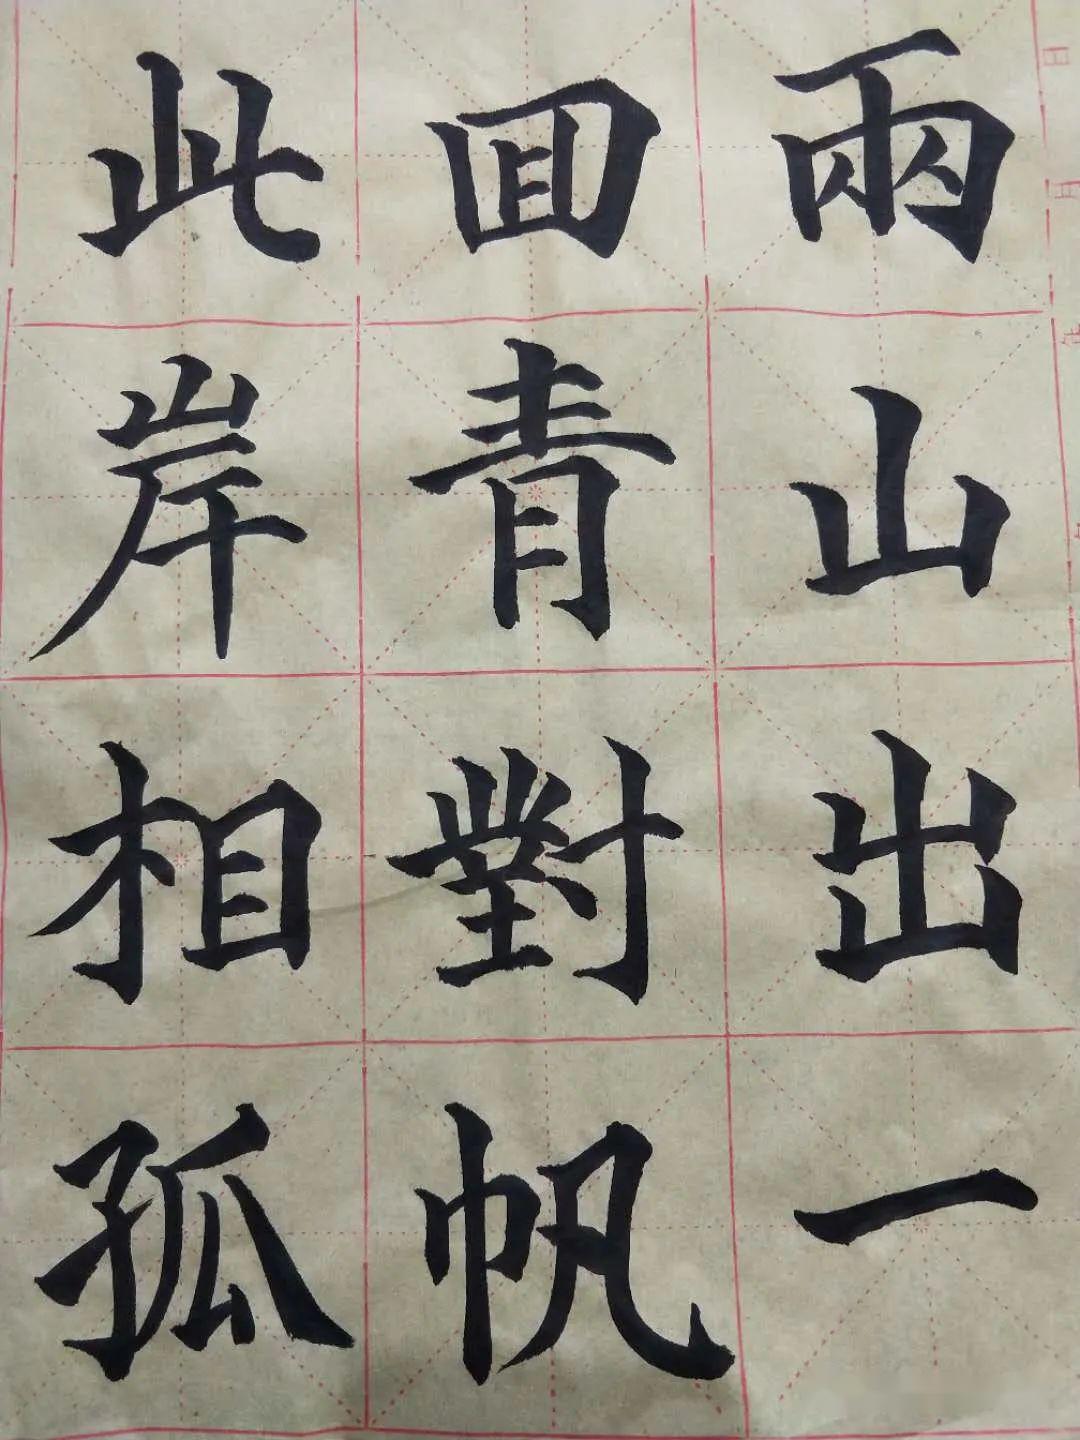 此回兩
岸青山
相對出
孤帆一